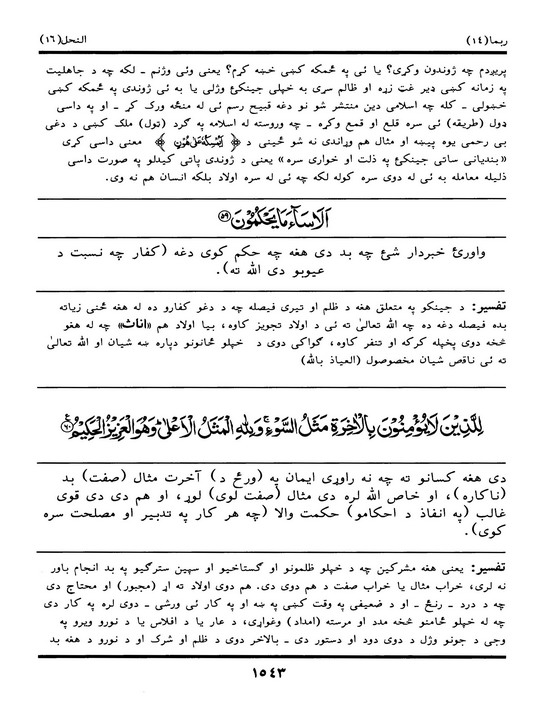 ربما (١٤)
النحل (١٦)
پریږدم چه ژوندون وکړی؟ یا ئی په ځمکه کښی ښخه کړم؟ یعنی وئی وژنم ــ لکه چه د جاهلیت
په زمانه کښی ډیر غټ زړه او ظالم سری به خپلی جینکئ وژلی یا به ئی ژوندی په ځمکه کښی
ښخولی ــ کله چه اسلامی دین منتشر شو نو دغه قبیح رسم ئی له منځه ورک کړ ــ او په داسی
ډول (طریقه) ئی سره قلع او قمع وکړه ــ چه وروسته له اسلامه په ګرد (ټول) ملک کښی د دغی
بی رحمی یوه پیښه او مثال هم وړاندی نه شو ځینی د ﴿ اَیُمْسِكُهٗ عَلٰی هُوْنٍ ﴾ معنی داسی کړی
«بندیانی ساتی جینکئ په ذلت او خواری سره» یعنی د ژوندی پاتی کیدلو په صورت داسی
ذلیله معامله به ئی له دوی سره کوله لکه چه ئی له سره اولاد بلکه انسان هم نه وی.
اَلَا سَآءَ مَا یَحْكُمُوْنَ ﴿۵۹﴾
واورئ خبردار شئ چه بد دی هغه چه حکم کوی دغه (کفار چه نسبت د
عیوبو دی الله ته).
تفسیر: د جینکو په متعلق هغه د ظلم او تیری فیصله چه د دغو کفارو ده له هغه ځنی زیاته
بده فیصله دغه ده چه الله تعالیٰ ته ئی د اولاد تجویز کاوه، بیا اولاد هم «اناث» چه له هغو
څخه دوی پخپله کرکه او تنفر کاوه، ګواکی دوی د خپلو ځانونو دپاره ښه شیان او الله تعالیٰ
ته ئی ناقص شیان مخصوصول (العیاذ بالله)
لِلَّذِیْنَ لَا یُؤْمِنُوْنَ بِالْاٰخِرَةِ مَثَلُ السَّوْءِ ۚ وَلِلّٰهِ الْمَثَلُ الْاَعْلٰی ؕ وَهُوَ الْعَزِیْزُ الْحَكِیْمُ ﴿۶۰﴾
دی هغه کسانو ته چه نه راوړی ایمان په (ورځ د) آخرت مثال (صفت) بد
(ناکاره)، او خاص الله لره دی مثال (صفت لوی) لوړ، او هم دی دی قوی
غالب (په انفاذ د احکامو) حکمت والا (چه هر کار په تدبیر او مصلحت سره
کوی).
تفسیر: یعنی هغه مشرکین چه د خپلو ظلمونو او ګستاخیو او سپین سترګیو په بد انجام باور
نه لری، خراب مثال یا خراب صفت د هم دوی دی. هم دوی اولاد ته اړ (مجبور) او محتاج دی
چه د درد ــ رنځ ــ او د ضعیفی په وقت کښی په ښه او په کار ئی ورشی ــ دوی لره په کار دی
چه له خپلو ځامنو څخه مدد او مرسته (امداد) وغواړی، د عار یا د افلاس یا د نورو ویرو په
وجی د جونو وژل د دوی دود او دستور دی ــ بالاخر دوی د ظلم او شرک او د نورو د هغه بد
۱۵۴۳